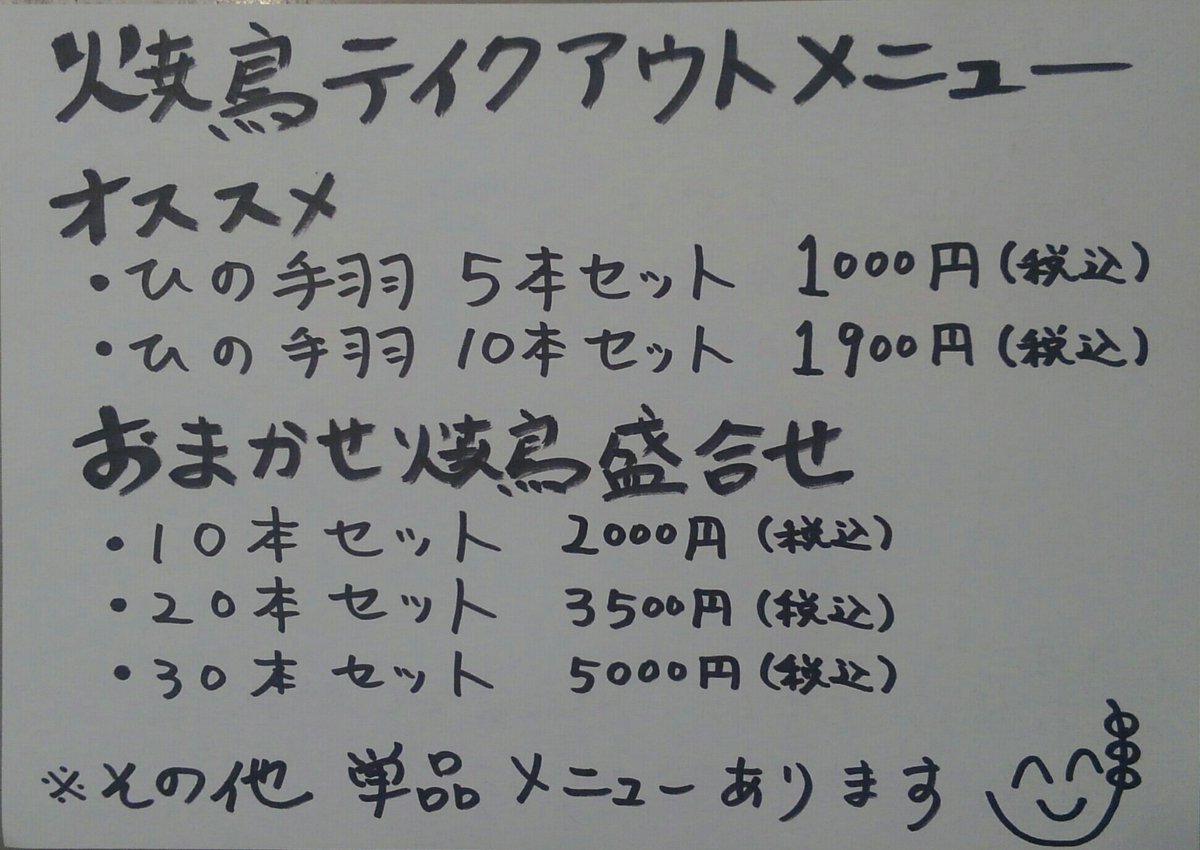 焼鳥テイクアウトメニュー
オススメ
・ひの手羽 5本セット 1000円(税込)
・ひの手羽 10本セット 1900円(税込)
おまかせ焼鳥盛合せ
・10本セット 2000円(税込)
・20本セット 3500円(税込)
・30本セット 5000円(税込)
※その他 単品メニューあります